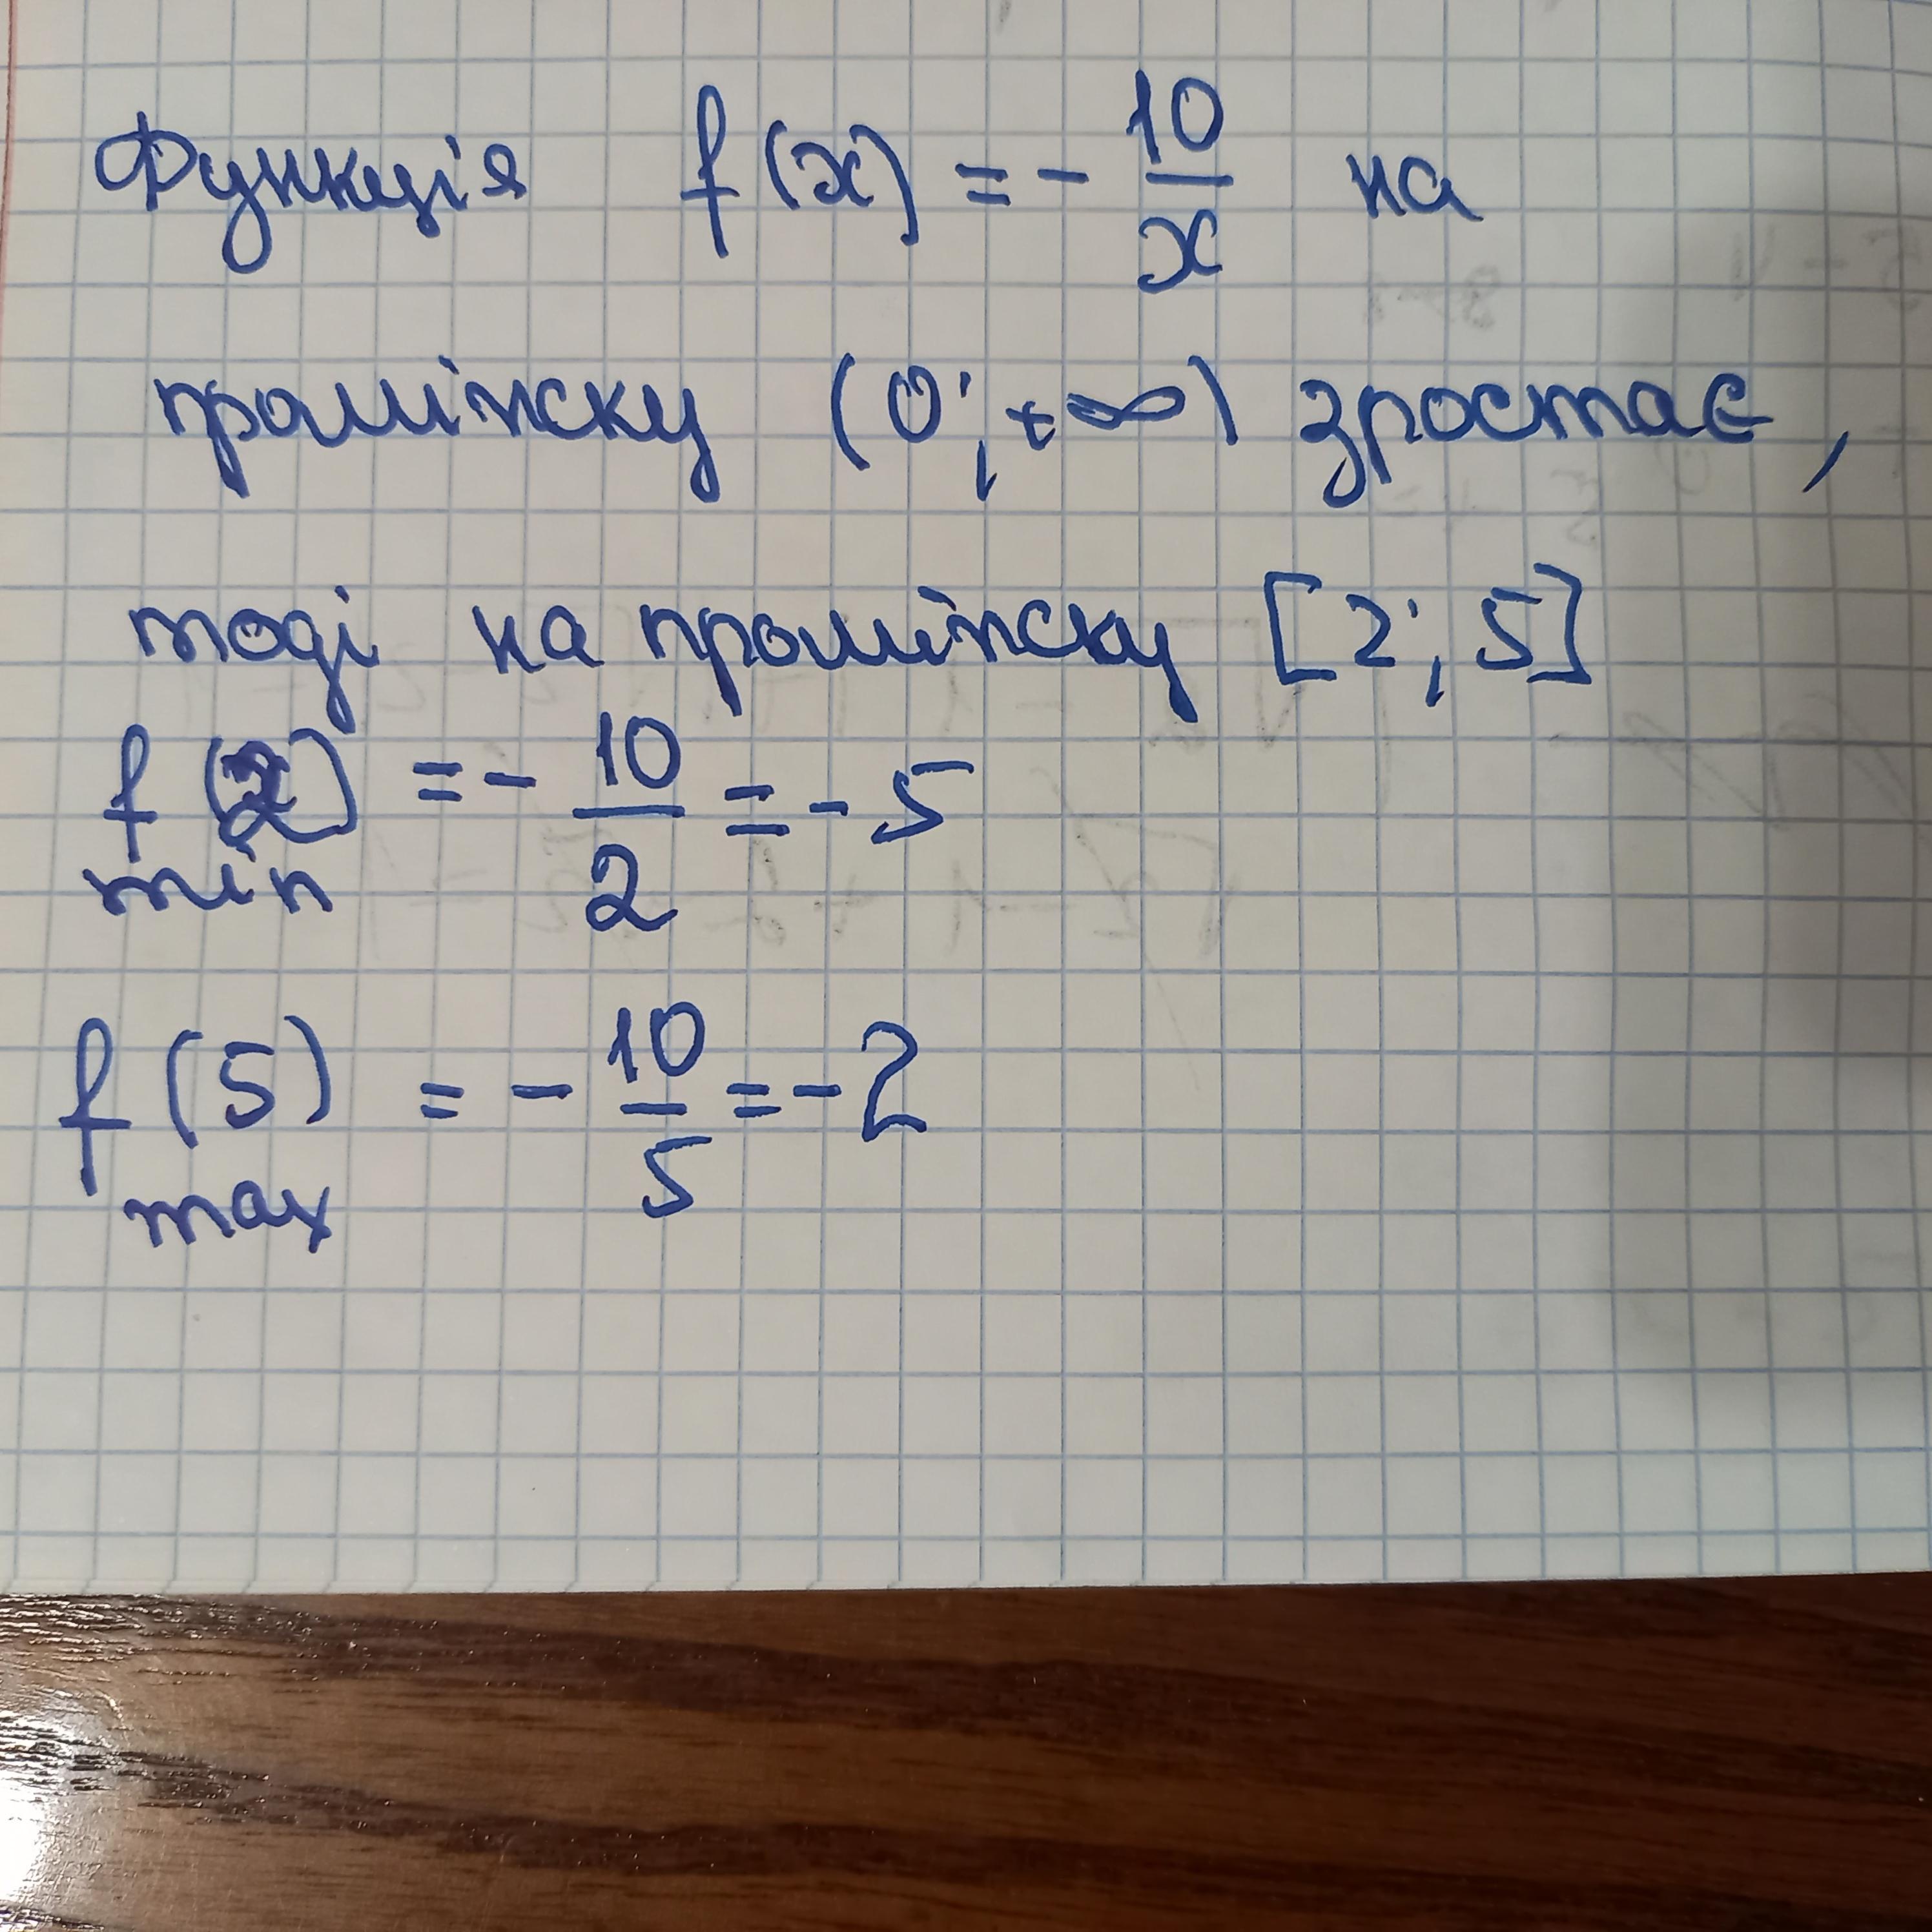 Функція f(x) = - 10/x на
проміжку (0; +∞) зростає,
тоді на проміжку [2; 5]
f(2) = - 10/2 = - 5
min
f(5) = - 10/5 = - 2
max